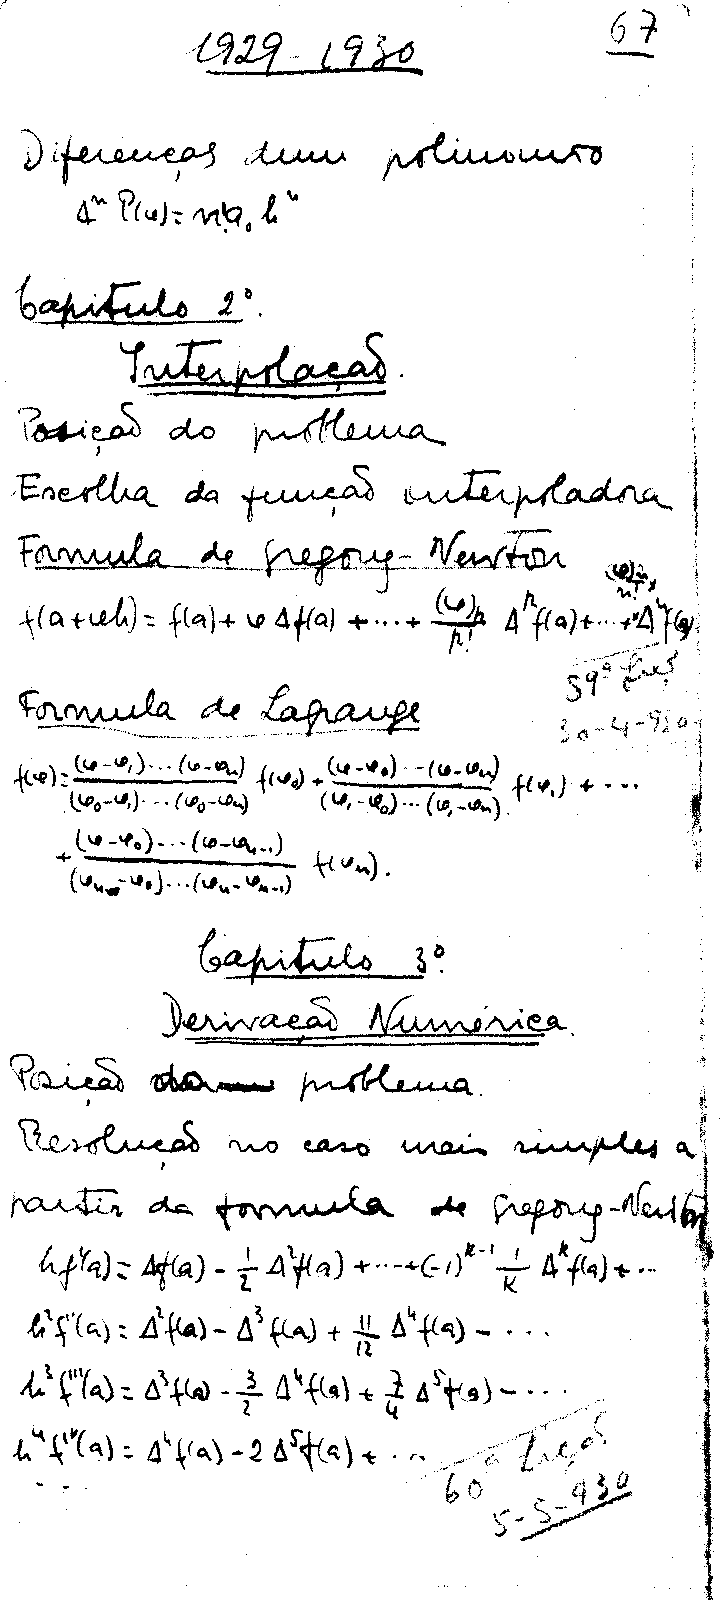 67
1929-1930
Diferenças dum polinomio
Δⁿ P(φ) = n! a₀ hⁿ
Capitulo 2º.
Interpolação.
Posição do problema
Escolha da função interpoladora
Formula de Gregory-Newton
f(a+φh) = f(a) + φ Δf(a) + ··· + (φ)ₚ/p! Δᵖ f(a) + ··· + (φ)ₙ/n! Δⁿ f(a)
59ª Lição
30-4-930
Formula de Lagrange
f(φ) = (φ-φ₁)···(φ-φₙ)/(φ₀-φ₁)···(φ₀-φₙ) f(φ₀) + (φ-φ₀)···(φ-φₙ)/(φ₁-φ₀)···(φ₁-φₙ) f(φ₁) + ···
+ (φ-φ₀)···(φ-φₙ₋₁)/(φₙ-φ₀)···(φₙ-φₙ₋₁) f(φₙ).
Capitulo 3º.
Derivação Numérica.
Posição do problema.
Resolução no caso mais simples a
partir da formula de Gregory-Newton
hf'(a) = Δf(a) - 1/2 Δ²f(a) + ··· + (-1)ᵏ⁻¹ 1/k Δᵏf(a) + ···
h²f''(a) = Δ²f(a) - Δ³f(a) + 11/12 Δ⁴f(a) - ···
h³f'''(a) = Δ³f(a) - 3/2 Δ⁴f(a) + 7/4 Δ⁵f(a) - ···
h⁴f⁗(a) = Δ⁴f(a) - 2 Δ⁵f(a) + ···
- - -
60ª Lição
5-5-930